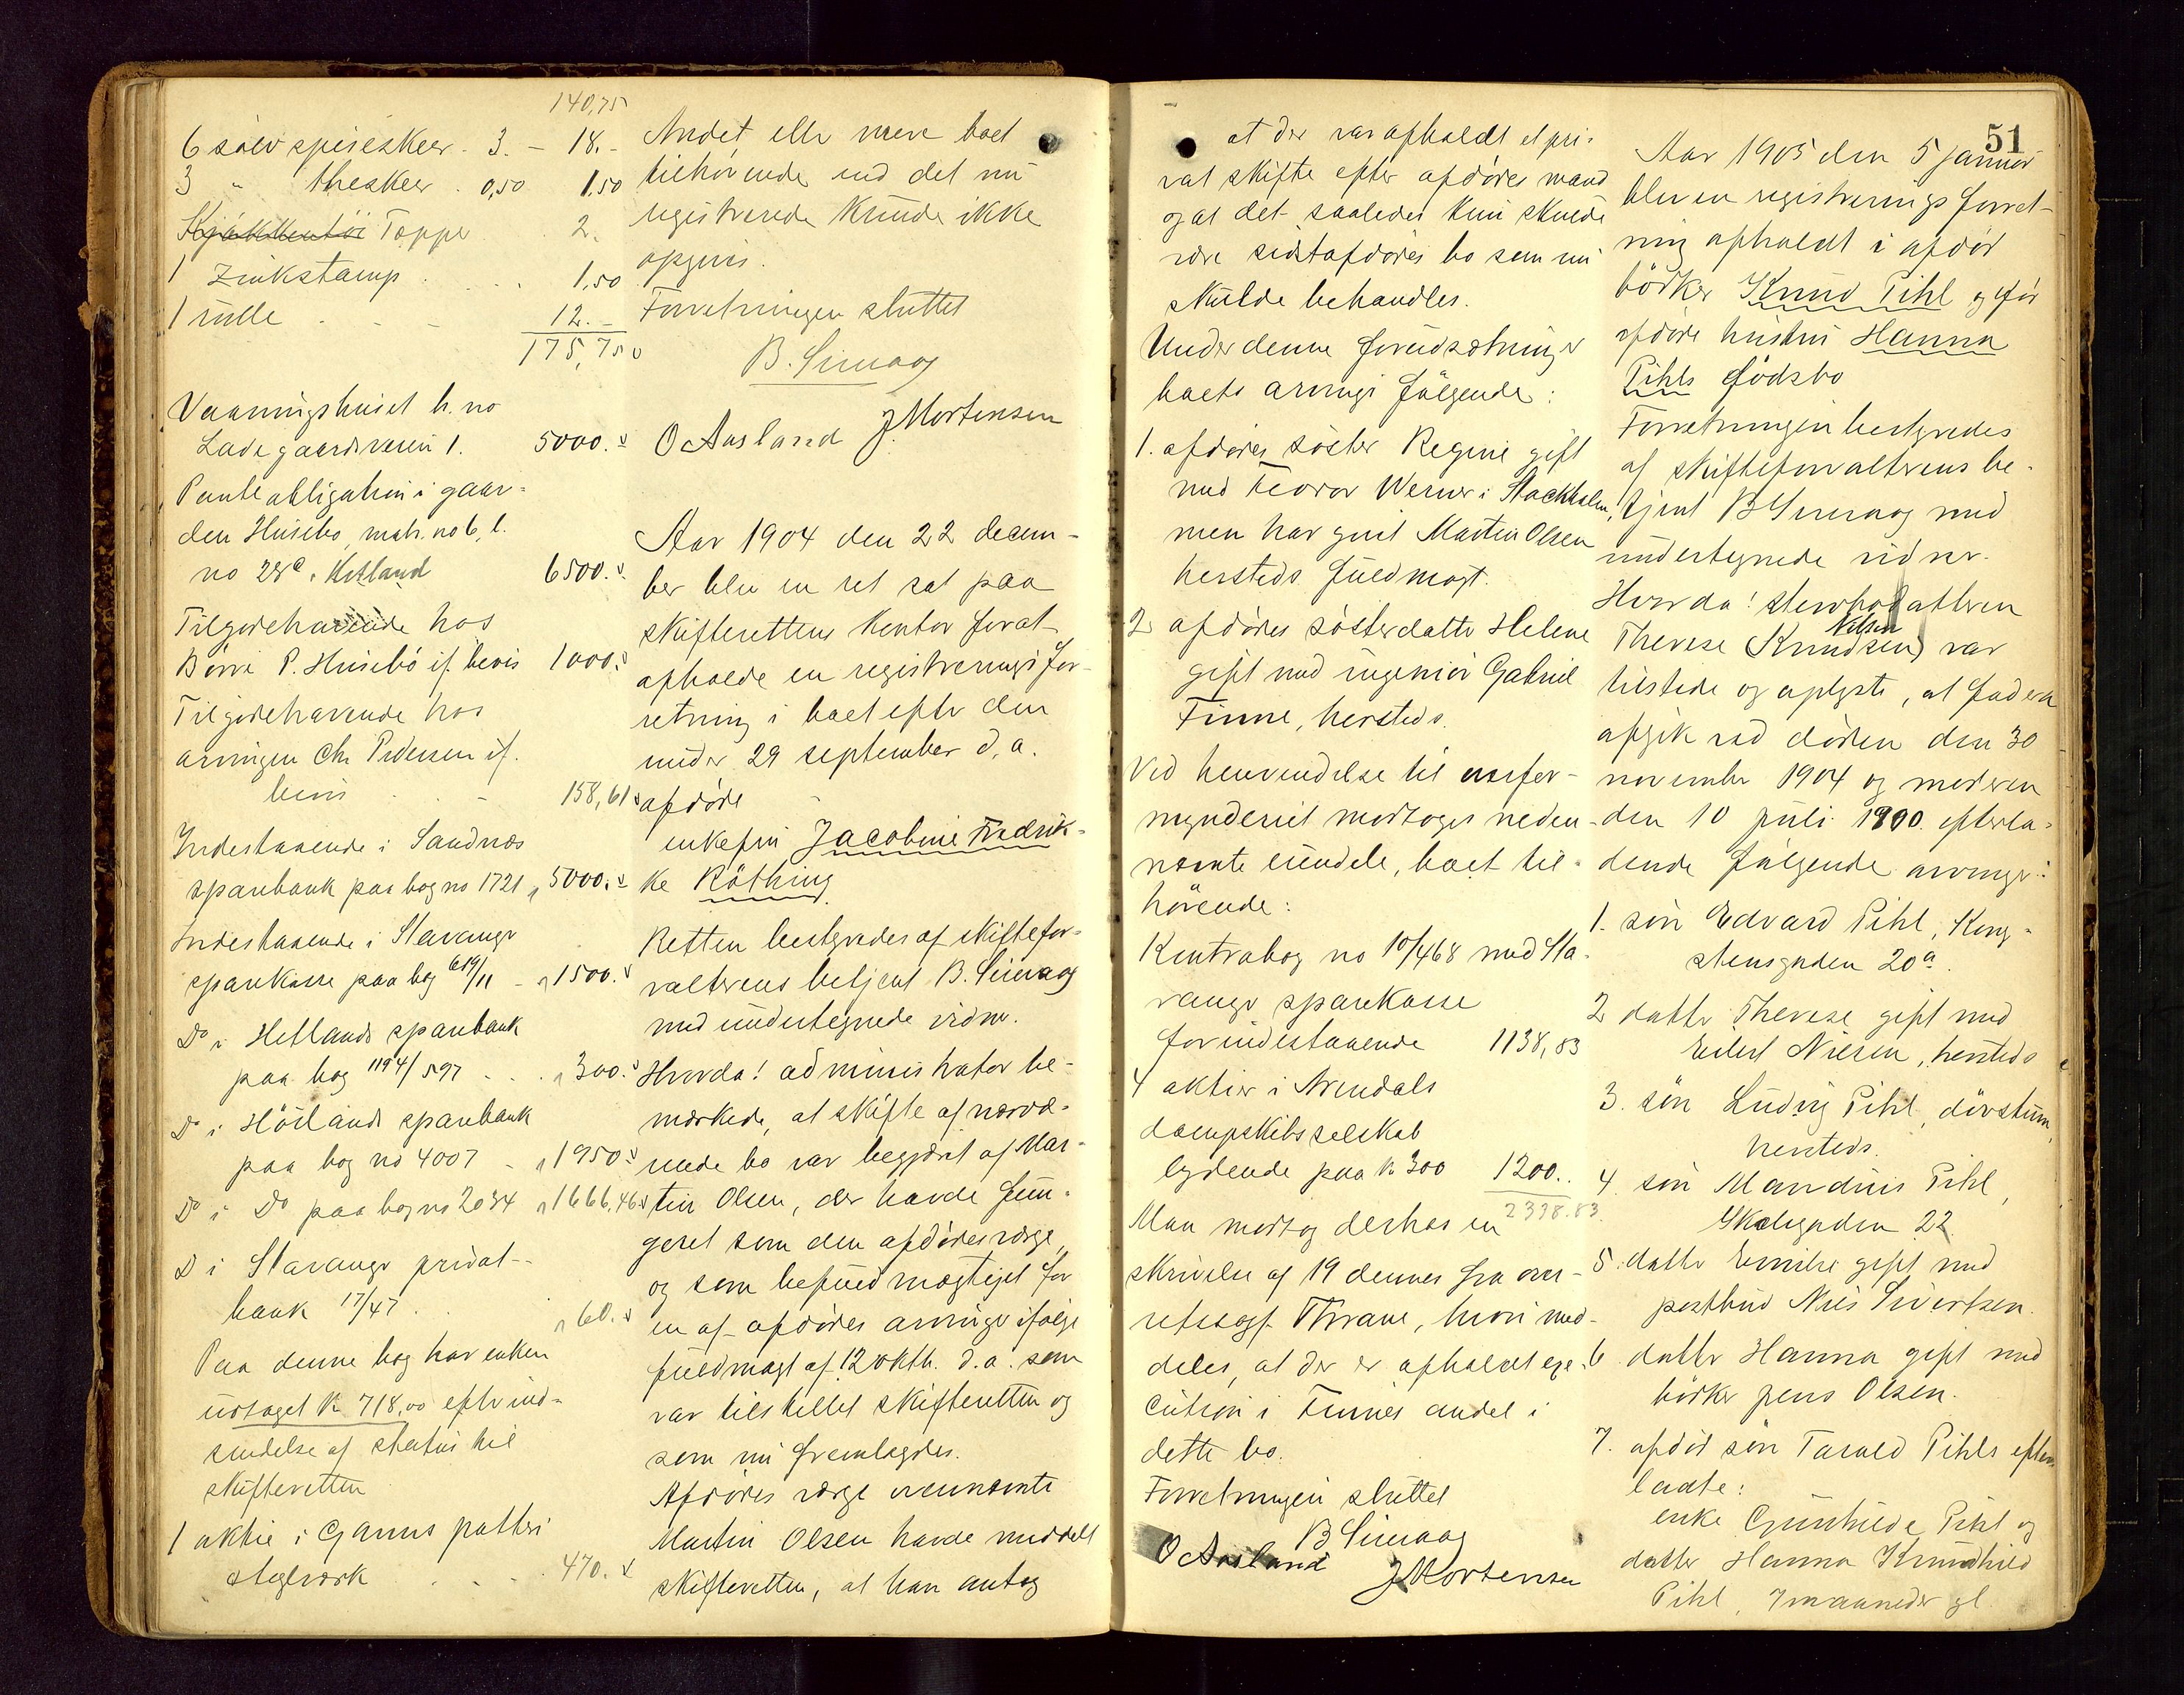 140,75
6 sølv spiseskeer . 3. – 18. –
3 " theskeer . 0,50 1,50
Kjøkkentøi Topper . 2.
1 Zinkstamp . . . . 1,50
1 rulle . – – 12. –
175,750
Vaaningshuset h. no
Ladegaardsveien 1. 5000. "
Panteobligation i gaar-
den Husebø, matr. no 6, l.
no 28a i Hetland 6500. "
Tilgodehavende hos
Børre P. Husebø if. bevis 1000. "
Tilgodehavende hos
arvingen Chr Pedersen if.
bevis . – 158,61
Indestaaende i Sandnæs
sparebank paa bog no 1721 " 5000. "
Indestaaende i Stavanger
sparekasse paa bog 619/11 – " 1500. "
Do i Hetlands sparebank
paa bog 1194/597 . . . " 300. "
Do i Höilands sparebank
paa bog no 4007 – " 1950 "
Do i Do paa bog no 2034 " 1666,46
D i Stavanger privat-
bank 17/47 . . " 60. "
Paa denne bog har enken
udtaget kr 718,00 efter ind-
sendelse af status til
skifteretten
1 aktie i Ganns potteri
& teglværk . . . 470. "
Andet eller mere boet
tilhørende end det nu
registrerede kunde ikke
opgives.
Forretningen sluttet
B. Simaog
O Aasland J Mortensen
Aar 1904 den 22 decem-
ber blev en ret sat paa
skifterettens kontor for at
afholde en registreringsfor-
retning i boet efter den
under 29 september d. a.
afdøde
enkefru Jacobine Fredrik-
ke Röthing
Retten bestyredes af skiftefor-
valterens betjent B. Simaog
med undertegnede vidner.
Hvorda! administrator be-
mærkede, at skifte af nærvæ-
rende bo var begjært af Mar-
tin Olsen, der havde fun-
geret som den afdødes værge,
og som befuldmægtiget for
en af afdødes arvinger ifølge
fuldmagt af 12 oktb. d. a. som
var tilstillet skifteretten og
som nu fremlagdes.
Afdødes værge ovennævnte
Martin Olsen havde meddelt
skifteretten, at han antog
at der var afholdt et pri-
vat skifte efter afdødes mand
og at det saaledes kun skulde
være sidstafdødes bo som nu
skulde behandles.
Under denne forudsætning er
boets arvinger følgende:
1. afdødes søster Regine gift
med Feodor Werner i Stockholm,
men har givet Martin Olsen
hersteds fuldmagt.
2 afdødes søsterdatter Helene
gift med ingeniør Gabriel
Finne, hersteds.
Ved henvendelse til overfor-
mynderiet modtoges neden-
nævnte eiendele, boet til-
hörende:
Kontrabog no 10/468 med Sta-
vanger sparekasse
for indestaaende 1138,83
4 aktier i Arendals
dampskibsselskab
lydende paa kr 300 1200. .
2338.83
Man modtog derhos en
skrivelse af 19 dennes fra over-
retssagf. Thrane, hvori med-
deles, at der er afholdt exe-
cution i Finnes andel i
dette bo.
Forretningen sluttet
B Simaog
O Aasland J Mortensen
51
Aar 1905 den 5 januar
blev en registreringsforret-
ning afholdt i afdød
bödker Knud Pihl og før
afdøde hustru Hanna
Pihls fødsbo
Forretningen bestyredes
af skifteforvalterens be-
tjent B Simaog med
undertegnede vidner.
Hvorda! stervbodatteren
Nilsen
Therese (Knudsen) var
tilstede og oplyste, at faderen
afgik ved döden den 30
november 1904 og moderen
den 10 juli 1900 efterla-
dende følgende arvinger:
1. søn Edvard Pihl, Kong-
stensgaden 20a
2 datter Therese gift med
Eilert Nilsen, hersteds
3. søn Ludvig Pihl, døvstum,
hersteds.
4 søn Mandius Pihl,
Skolegaden 22
5. datter Emilie gift med
postbud Nils Sivertsen.
6. datter Hanna gift med
bödker Jens Olsen.
7. afdød søn Tarald Pihls efter-
ladte:
enke Gunhilde Pihl og
datter Hanna Knudhild
Pihl, 7 maaneder gl.